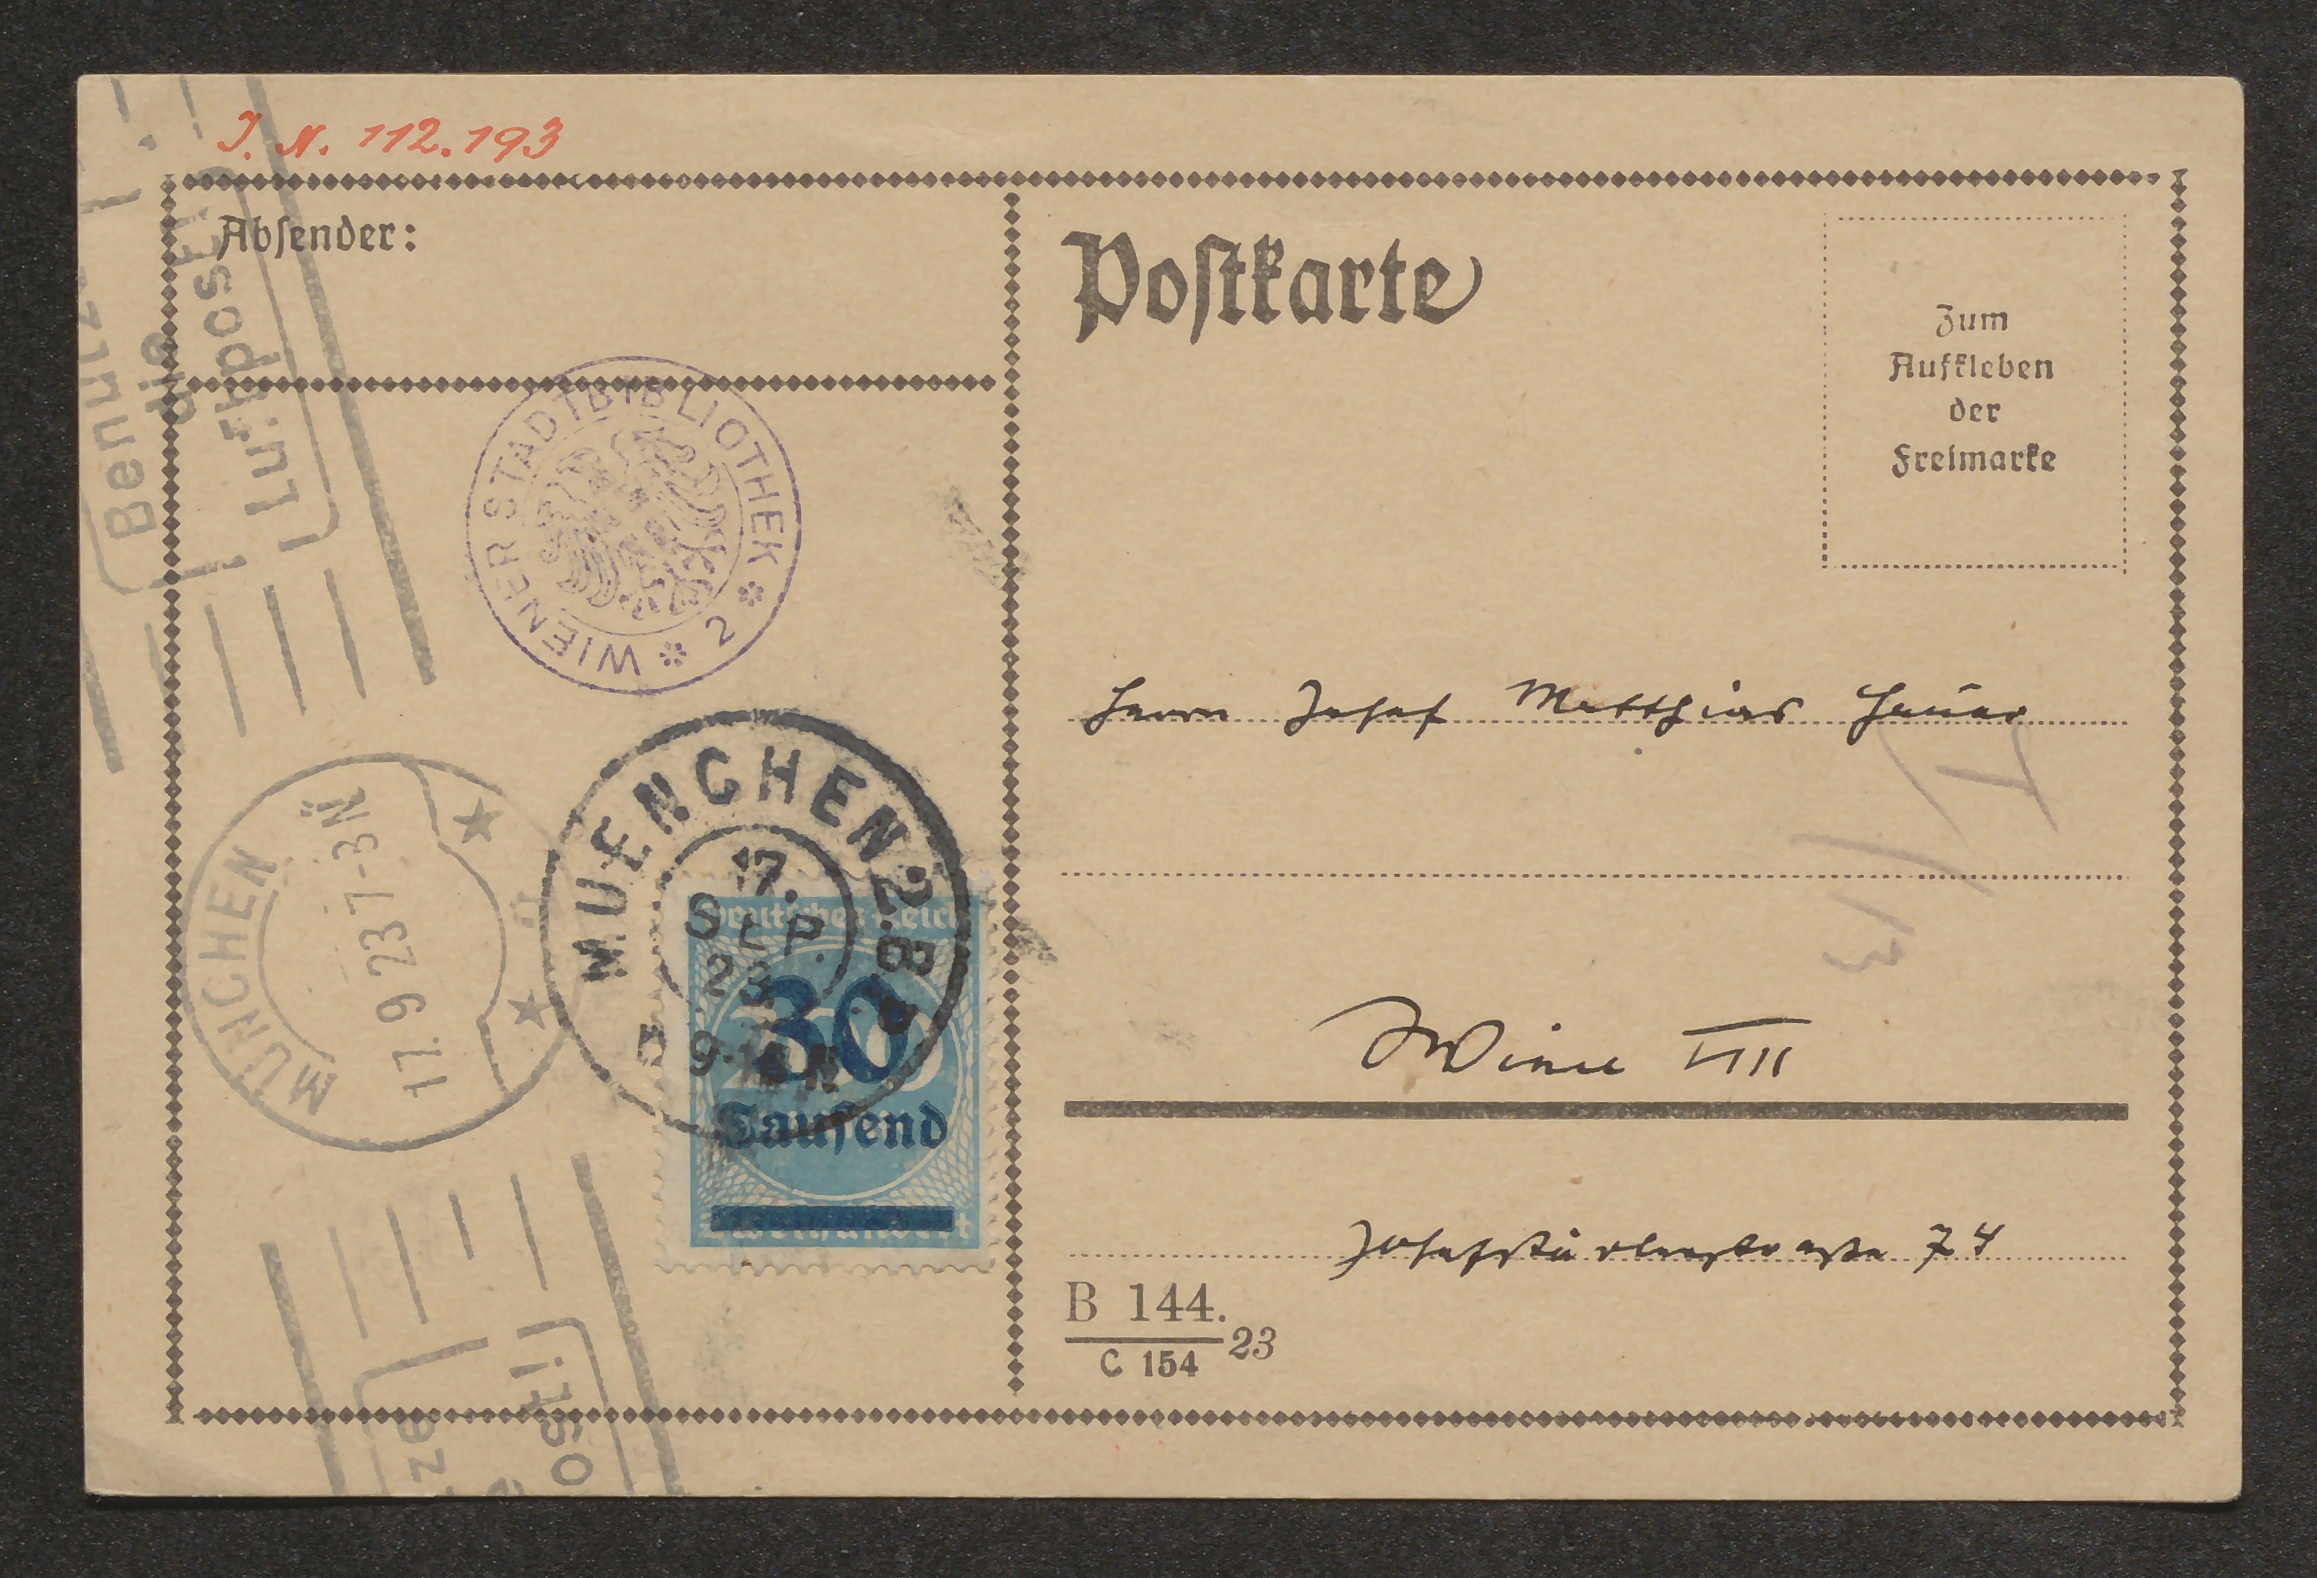 J. N. 112.193
Absender:
Postkarte
Zum
Aufkleben
der
Freimarke
WIENER STADTBIBLIOTHEK * 2 *
Benutzt
die
Luftpost!
MÜNCHEN
17. 9 23 7-8 N
MUENCHEN 2.B
17.
SEP.
23
Deutsches Reich
30
Tausend
Zweihundert
Herrn Josef Matthias Hauer
Wien VIII
Josefstädterstraße 74
B 144.
C 154
23